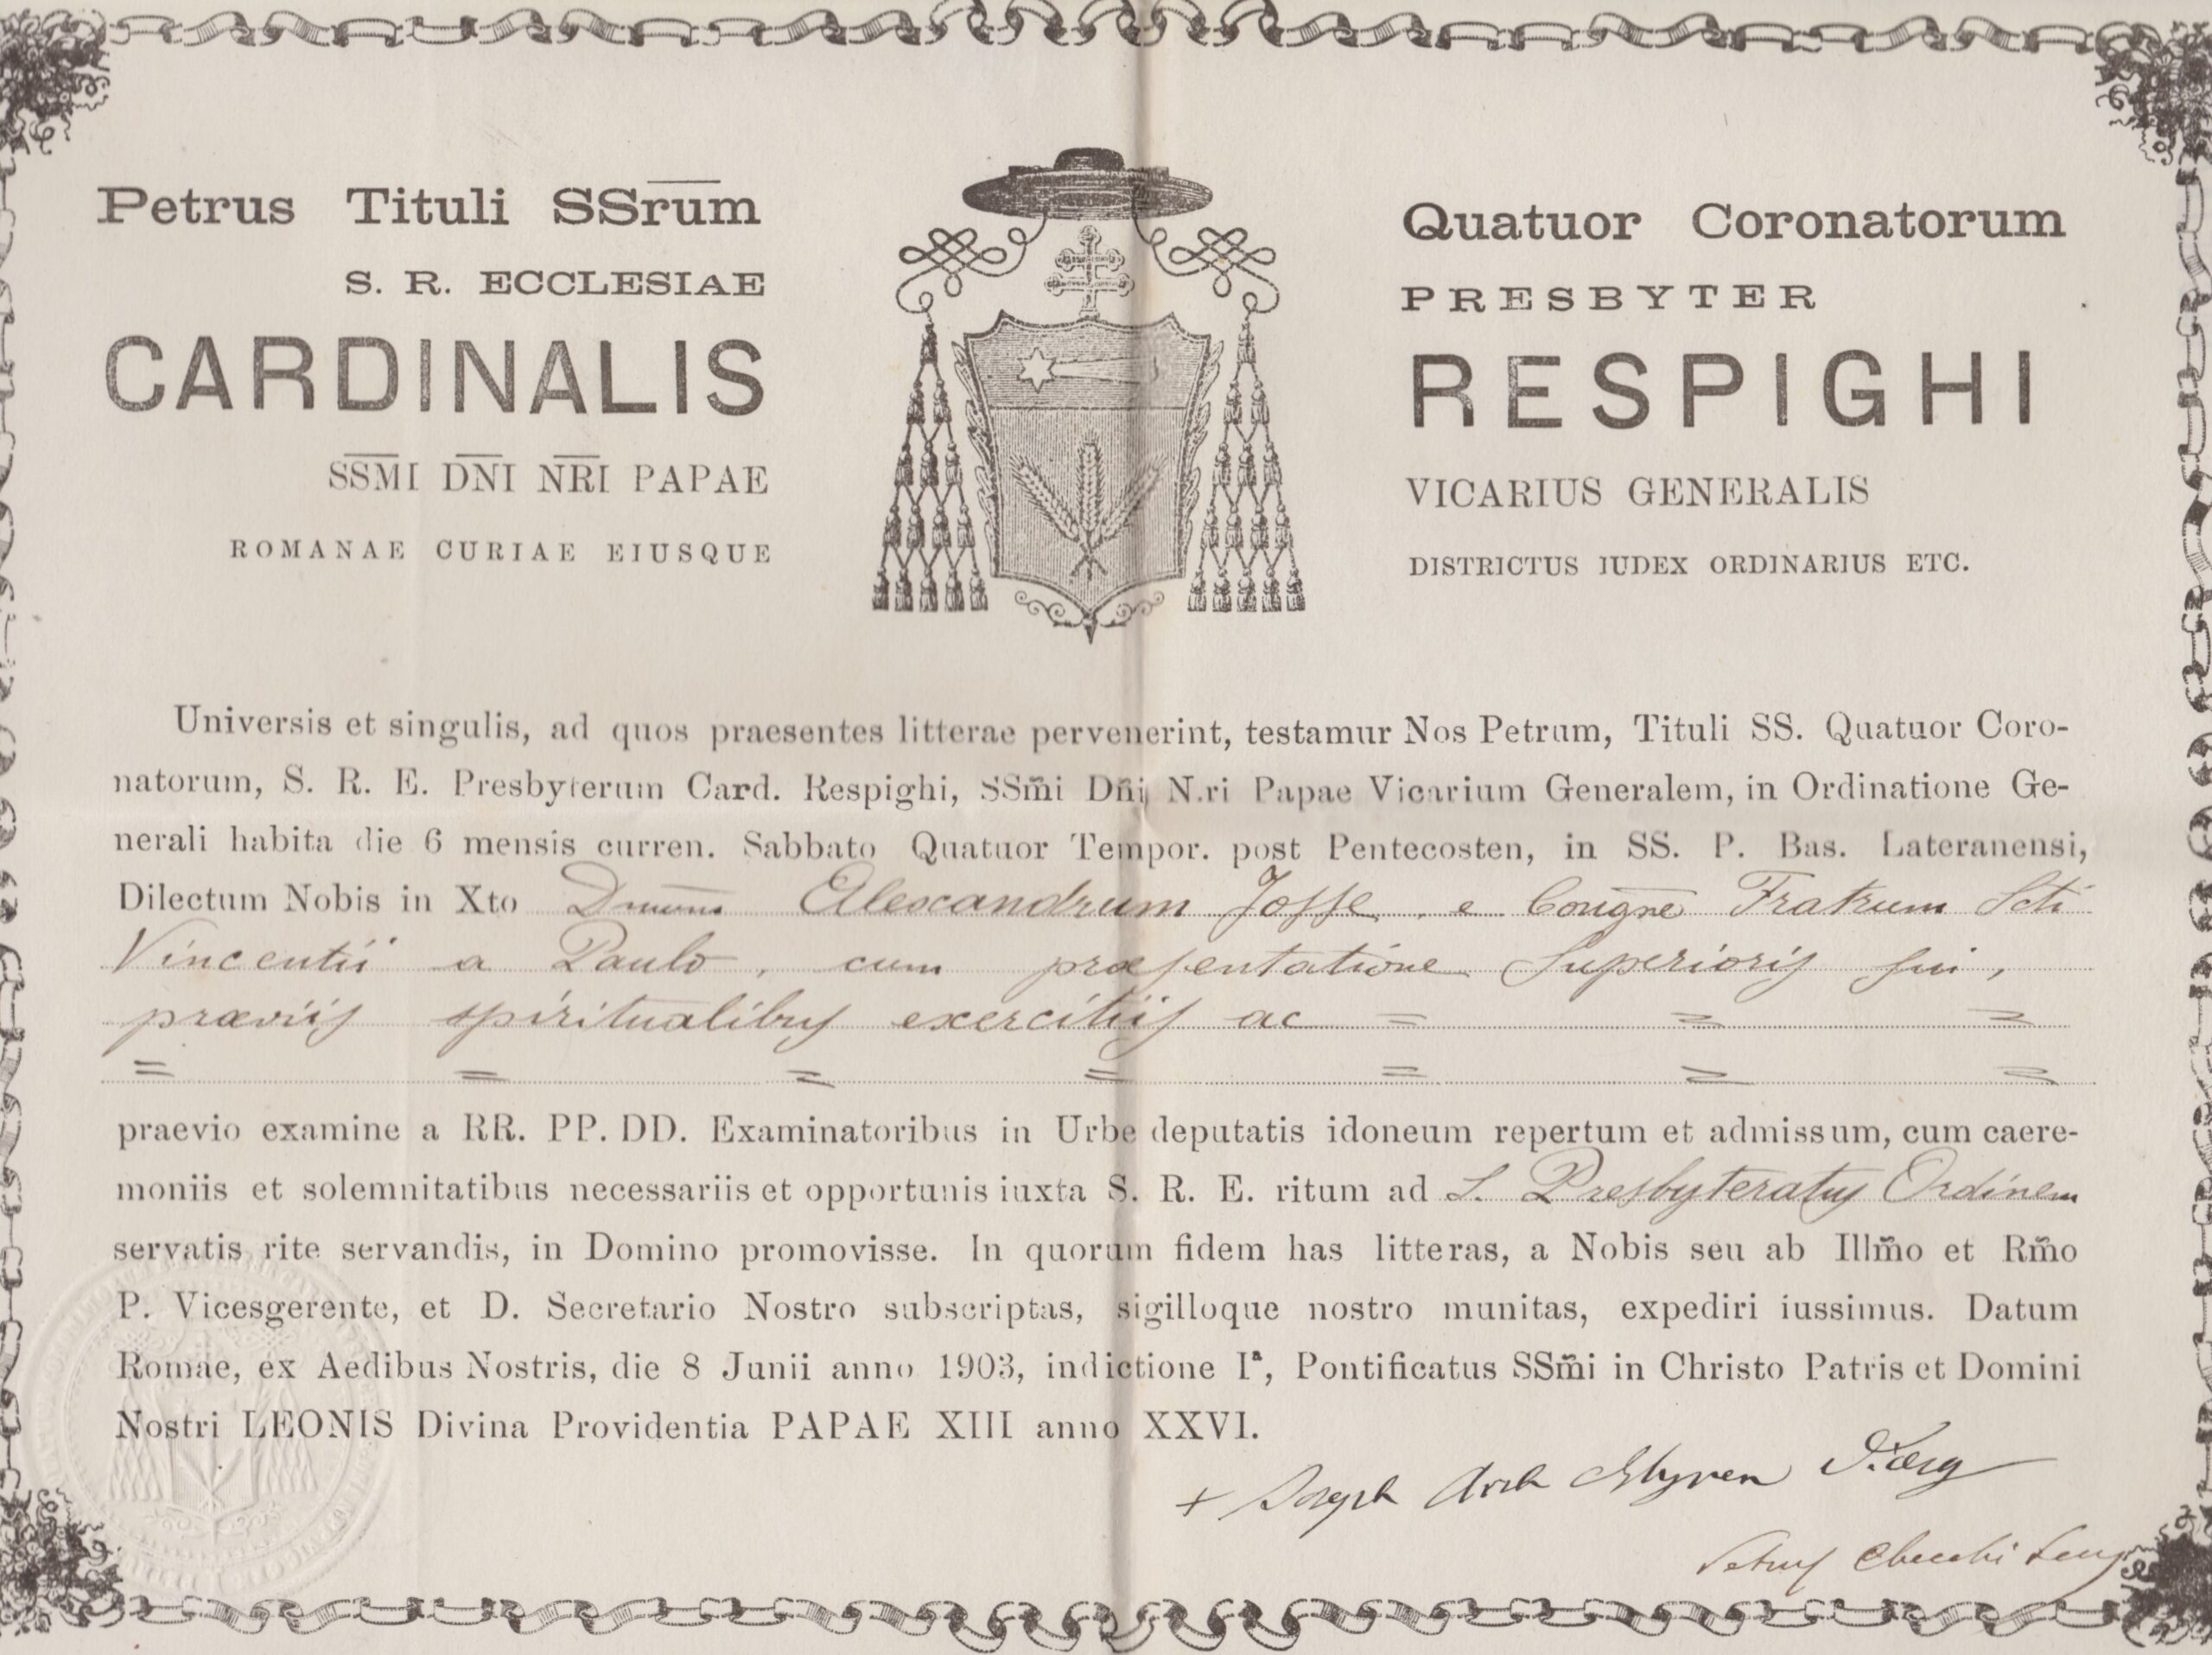 Petrus Tituli SSrum Quatuor Coronatorum
S. R. ECCLESIAE PRESBYTER
CARDINALIS RESPIGHI
SSMI DNI NRI PAPAE VICARIUS GENERALIS
ROMANAE CURIAE EIUSQUE DISTRICTUS IUDEX ORDINARIUS ETC.
Universis et singulis, ad quos praesentes litterae pervenerint, testamur Nos Petrum, Tituli SS. Quatuor Coro-
natorum, S. R. E. Presbyterum Card. Respighi, SSm̃i Dñi N.ri Papae Vicarium Generalem, in Ordinatione Ge-
nerali habita die 6 mensis curren. Sabbato Quatuor Tempor. post Pentecosten, in SS. P. Bas. Lateranensi,
Dilectum Nobis in Xto Alexandrum Josse, e Congne Fratrum Scti
Vincentii a Paulo, cum præsentatione Superioris sui,
præviis spiritualibus exercitiis ac = = =
= = = = = = =
praevio examine a RR. PP. DD. Examinatoribus in Urbe deputatis idoneum repertum et admissum, cum caere-
moniis et solemnitatibus necessariis et opportunis iuxta S. R. E. ritum ad S. Presbyteratus Ordinem
servatis rite servandis, in Domino promovisse. In quorum fidem has litteras, a Nobis seu ab Illm̃o et Rm̃o
P. Vicesgerente, et D. Secretario Nostro subscriptas, sigilloque nostro munitas, expediri iussimus. Datum
Romae, ex Aedibus Nostris, die 8 Junii anno 1903, indictione Iª, Pontificatus SSm̃i in Christo Patris et Domini
Nostri LEONIS Divina Providentia PAPAE XIII anno XXVI.
+ Joseph Arch
Petrus Checchi